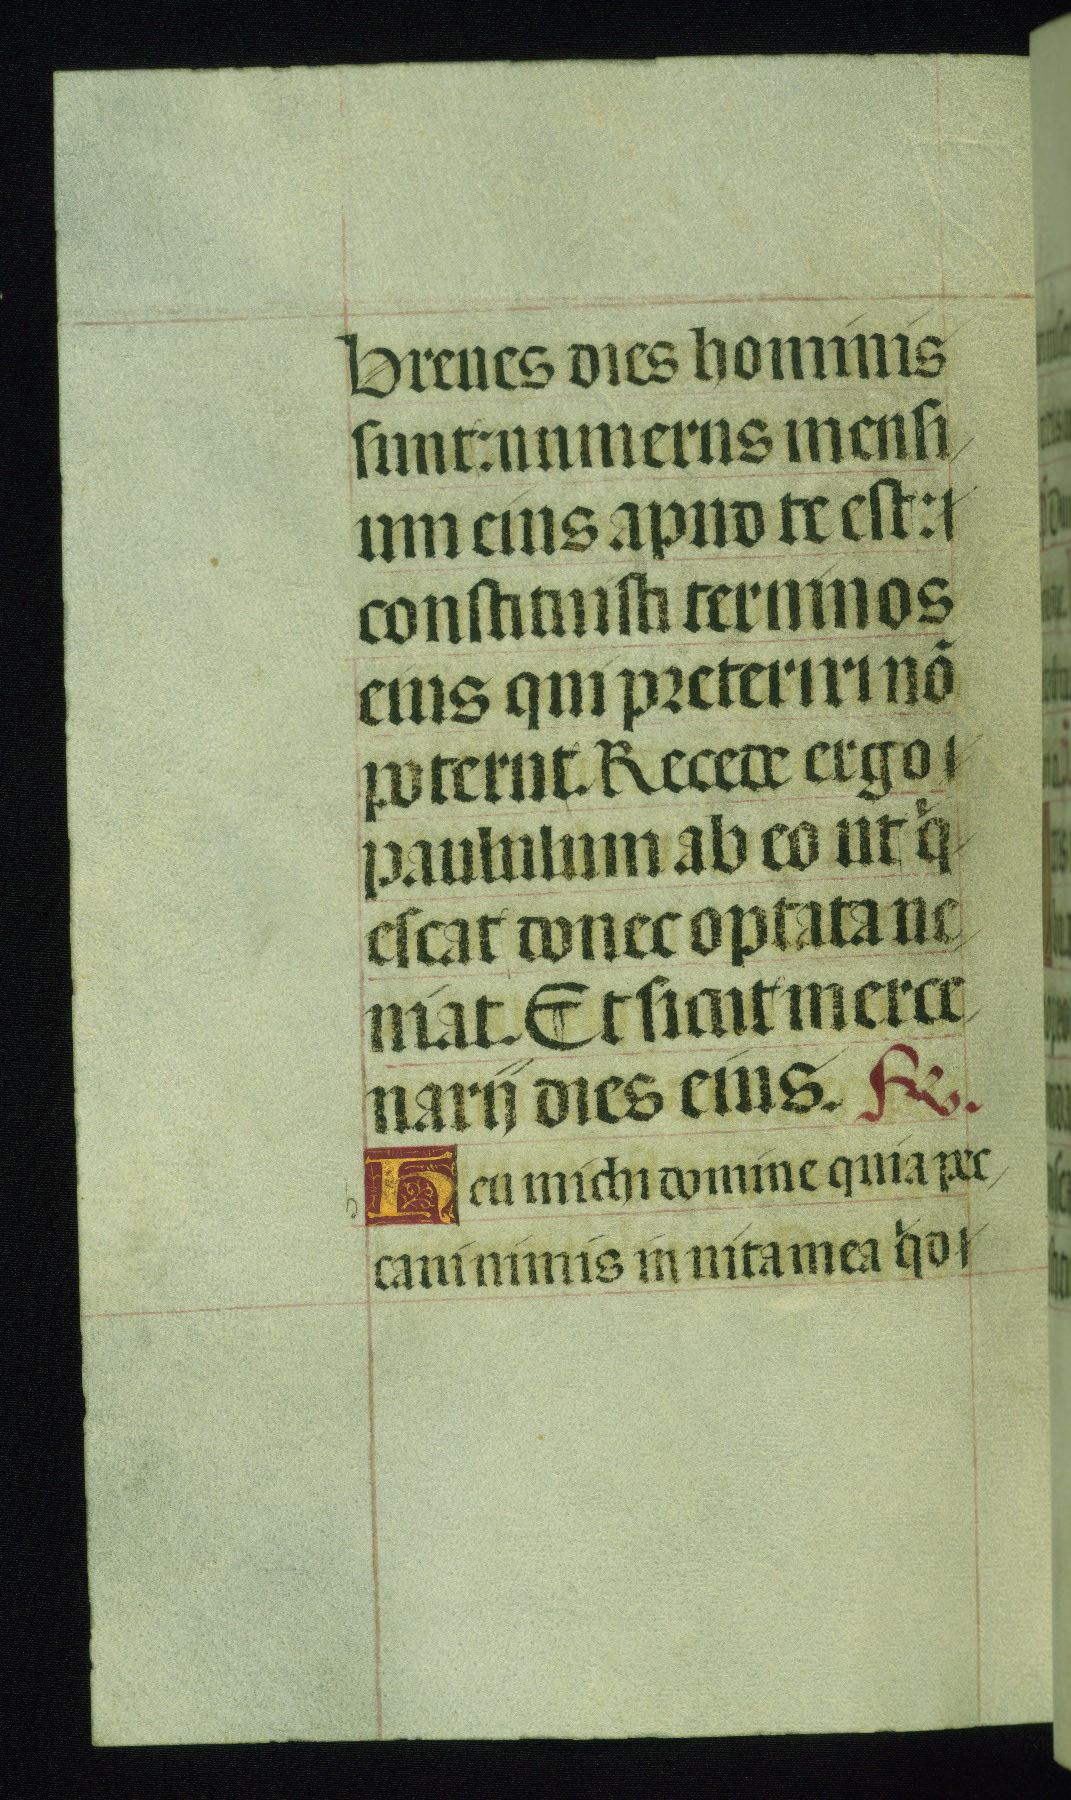 Breues dies hominis
sunt: numerus mensi
um eius apud te est:
constituisti terminos
eius qui preteriri nõ
poterũt. Recede ergo
paululum ab eo ut q̃
escat donec optata ue
niat. Et sicut merce
narij dies eius. R.
Heu michi domine quia pec
caui nimis in uita mea q̃d